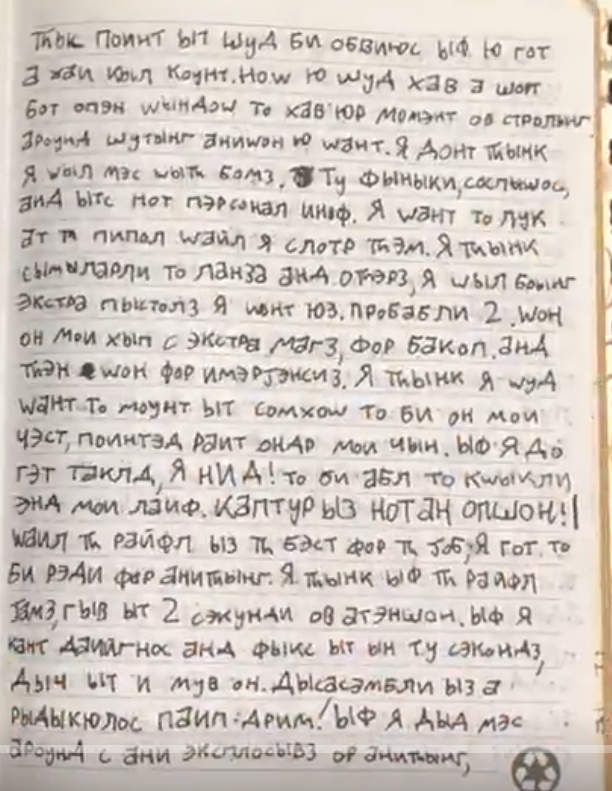 Тһык поинт ыт шуд би обвиюс ыф ю гот
а хаи кыл коунт. Ноw ю шуд хав а шот
бот опэн wындоw то хав юр момэнт ов стролынг
ароунд шутынг аниwон ю wант. Я донт тһынк
я wыл мэс wытһ бомз. Ту фыныки, соспышос,
анд ытс нот пэрсонал иноф. Я wант то лук
ат тһ пипол wайл я слотр тһэм. Я тһынк
сымыларли то ланза анд отһэрз, я wыл брынг
экстра пыстолз я wонт юз. пробабли 2. wон
он мои хып с экстра магз, фор бакоп. анд
тһэн wон фор имэрJэнсиз. Я тһынк я wуд
wант то моунт ыт сомхоw то би он мои
чэст, поинтэд раит ондр мои чын. ыф я до
гэт таклд, я нид! то би абл то кwыкли
энд мои лаиф. каптур ыз нот ан опшон!!
wаил тһ райфл ыз тһ бэст фор тһ Jоб, я гот то
би рэди фор анитһынг. Я тһынк ыф тһ раифл
Jамз, гыв ыт 2 сэкунди ов атэншон. ыф я
кант даиигнос анд фыкс ыт ын ту сэкондз,
дыч ыт и мув он. Дысасэмбли ыз а
рыдыкюлос паип:дрим! ыф я дыд мэс
ароунд с ани эксплосывз ор анитһынг,